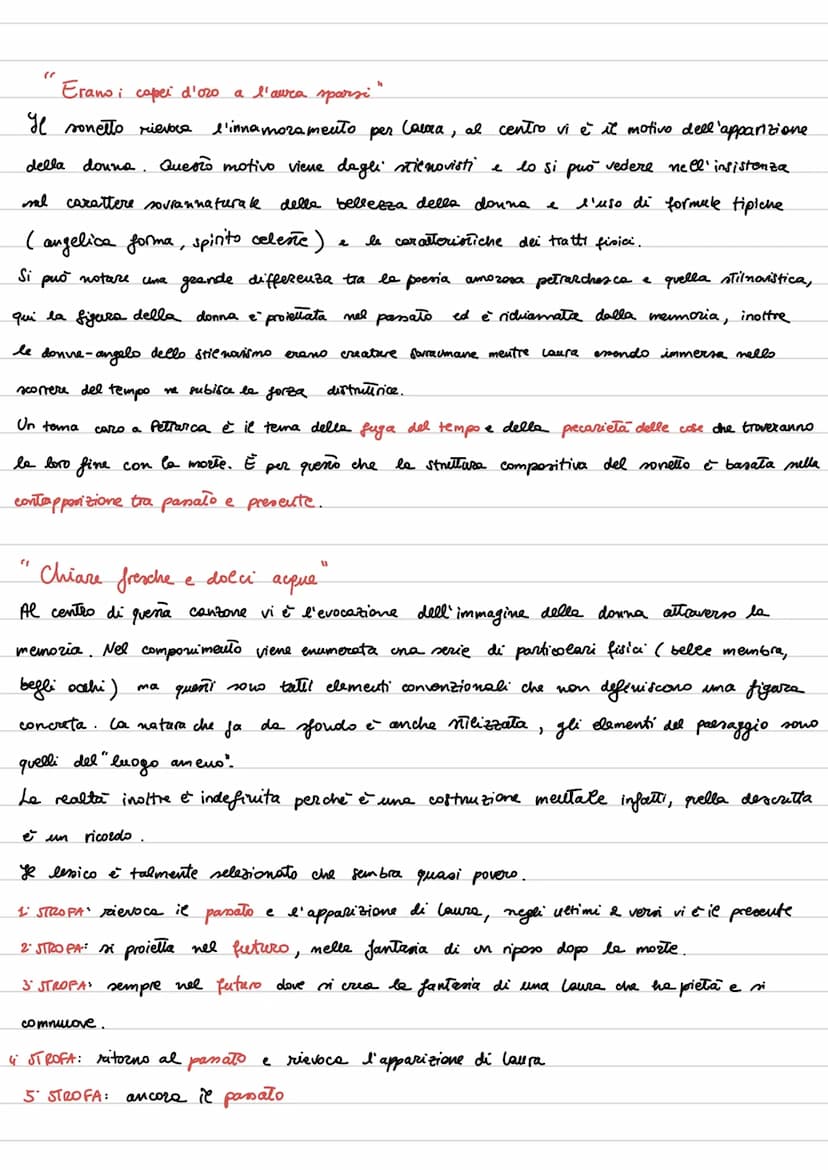 "Erano i capei d'oro a l'aura sparsi"
Il sonetto rievoca l'innamoramento per Laura, al centro vi è il motivo dell'apparizione
della donna. Questo motivo viene dagli stilnovisti e lo si può vedere nell'insistenza
sul carattere sovrannaturale della bellezza della donna e l'uso di formule tipiche
(angelica forma, spirito celeste) e le caratteristiche dei tratti fisici.
Si può notare una grande differenza tra la poesia amorosa petrarchesca e quella stilnovistica,
qui la figura della donna è proiettata nel passato ed è richiamata dalla memoria, inoltre
le donne-angelo dello stilnovismo erano creature sovraumane mentre Laura essendo immersa nello
scorrere del tempo ne subisce la forza distruttrice.
Un tema caro a Petrarca è il tema della fuga del tempo e della precarietà delle cose che troveranno
la loro fine con la morte. È per questo che la struttura compositiva del sonetto è basata sulla
contapposizione tra passato e presente.
"Chiare fresche e dolci acque"
Al centro di questa canzone vi è l'evocazione dell'immagine della donna attraverso la
memoria. Nel componimento viene enumerata una serie di particolari fisici (belle membra,
begli occhi) ma questi sono tutti elementi convenzionali che non definiscono una figura
concreta. La natura che fa da sfondo è anche stilizzata, gli elementi del paesaggio sono
quelli del "luogo ameno".
La realtà inoltre è indefinita perché è una costruzione mentale infatti, quella descritta
è un ricordo.
Il lessico è talmente selezionato che sembra quasi povero.
1° STROFA: rievoca il passato e l'apparizione di Laura, negli ultimi 2 versi vi è il presente
2° STROFA: si proietta nel futuro, nella fantasia di un riposo dopo la morte.
3° STROFA: sempre nel futuro dove si crea la fantasia di una Laura che ha pietà e si
commuove.
4° STROFA: ritorno al passato e rievoca l'apparizione di Laura
5° STROFA: ancora il passato